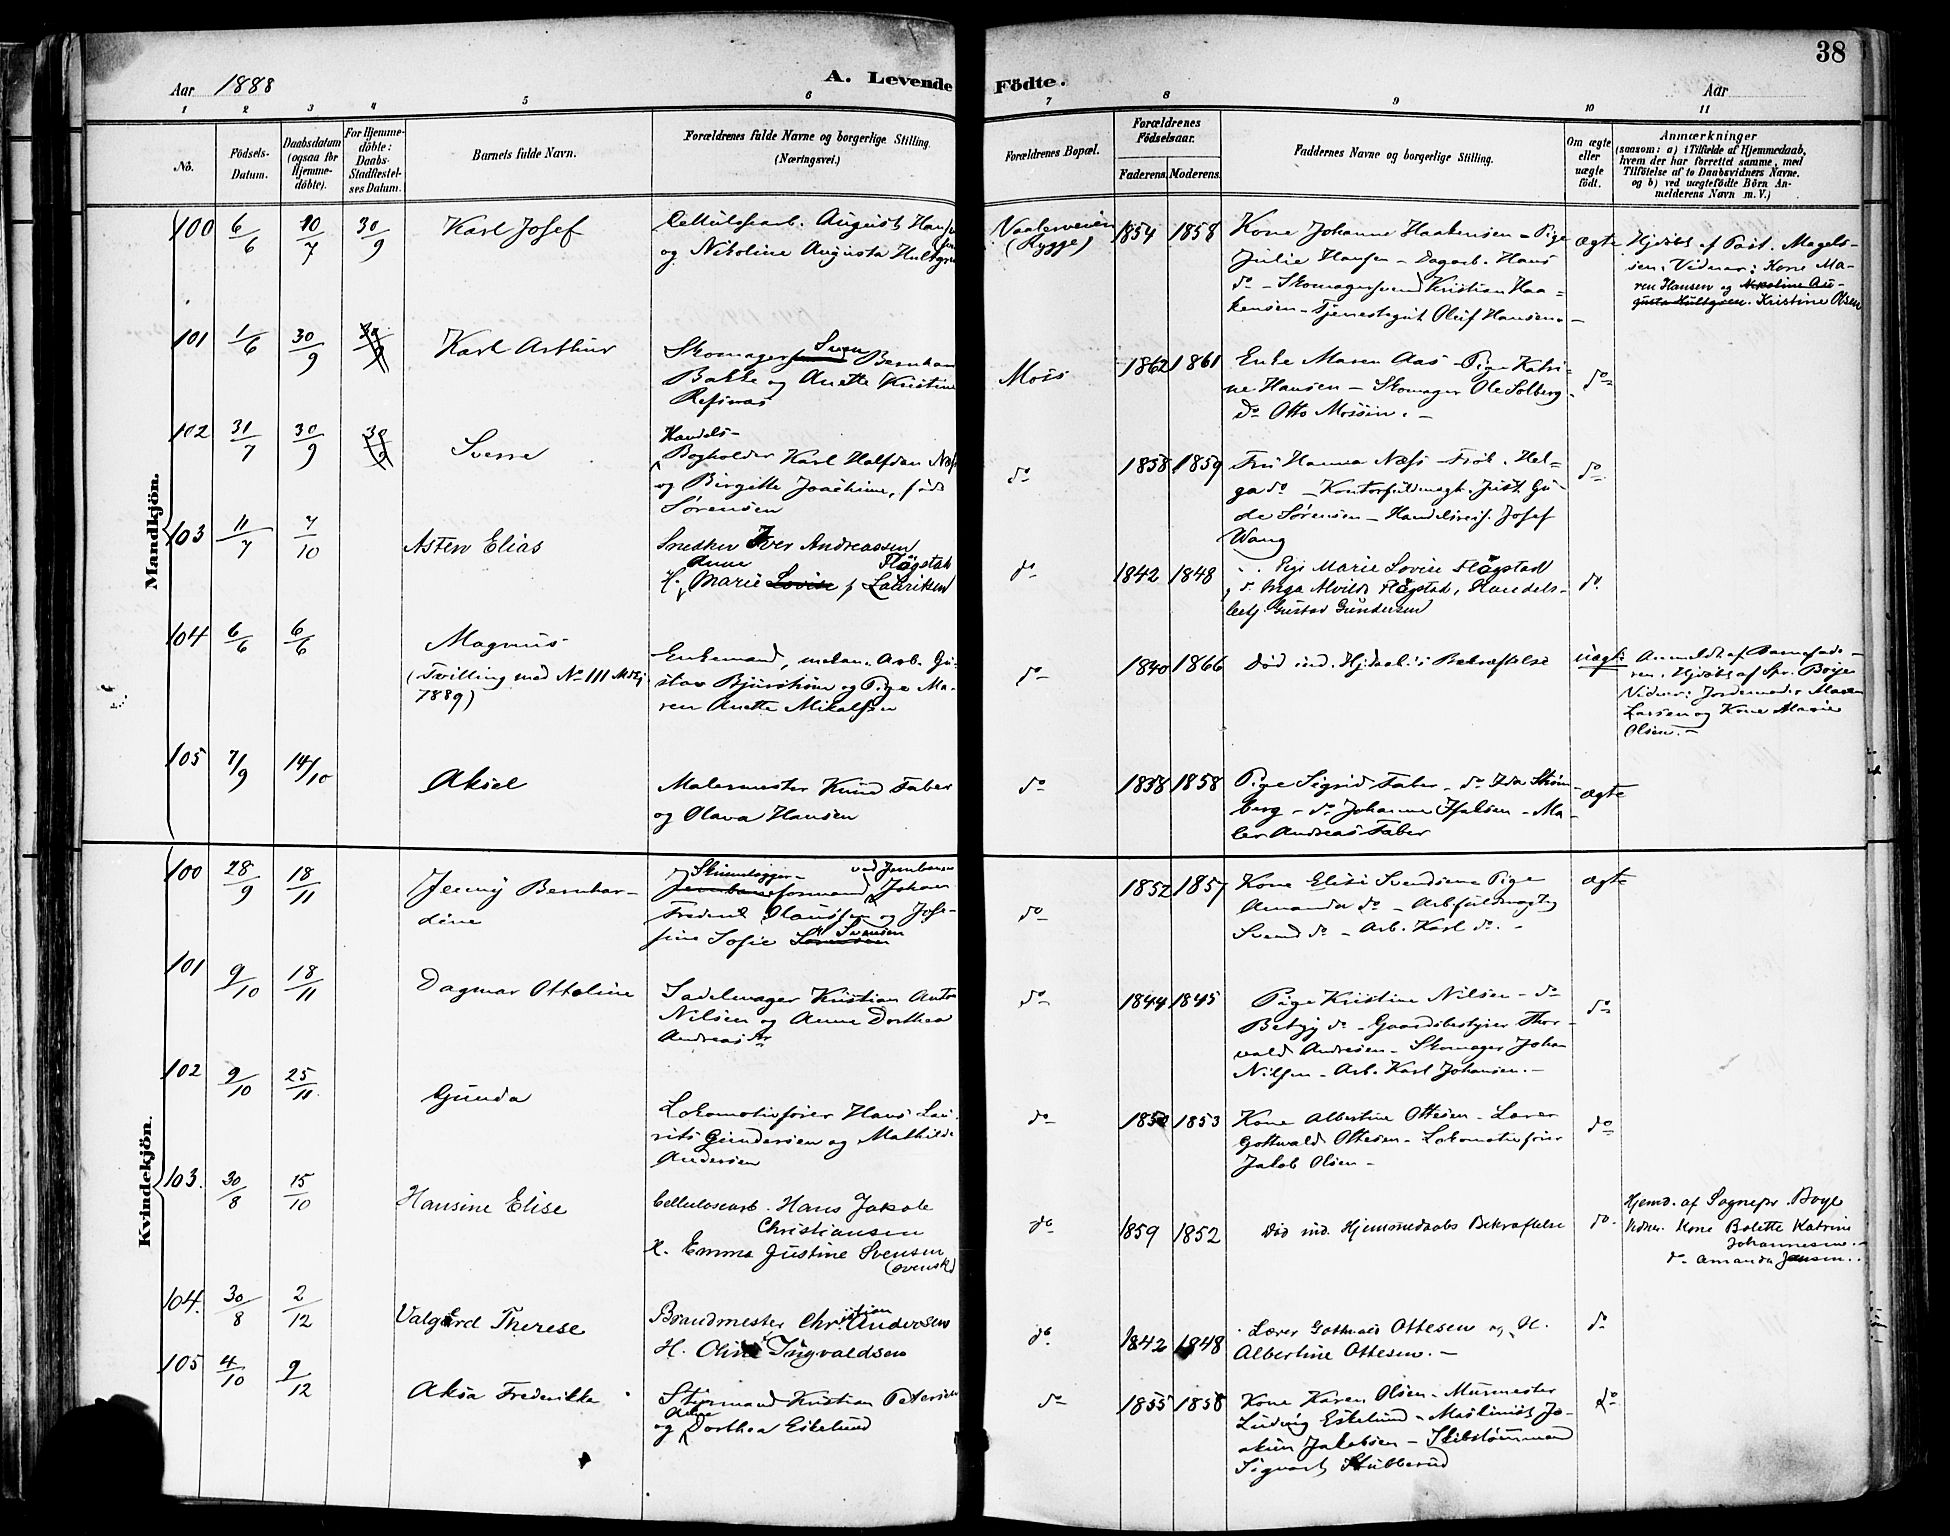 38
Aar 1888
A. Levende Födte.
Aar
1 2 3 4 5 6 7 8 9 10 11
Nô.
Födsels-Datum.
Daabsdatum (ogsaa for Hjemme-döbte).
For Hjemme-döbte: Daabs-Stadfæstel-ses Datum.
Barnets fulde Navn.
Forældrenes fulde Navne og borgerlige Stilling. (Næringsvei.)
Forældrenes Bopæl.
Forældrenes Födselsaar.
Faderens. Moderens.
Faddernes Navne og borgerlige Stilling.
Om ægte eller uægte födt.
Anmærkninger
(saasom: a) i Tilfælde af Hjemmedaab,
hvem der har forrettet samme, med
Tilföielse af to Daabsvidners Navne.
og b) ved uægtefödte Börn An-
melderens Navn m. V.)
Mandkjön.
100 6/6 10/7 30/9 Karl Josef
Cellulosearb. August Hansen
og Nikoline Augusta Hultgren
Vaalerveien
(Rygge)
1854 1858
Kone Johanne Haakensen - Pige
Julie Hansen - Dagarb. Hans
do - Skomagersvend Kristian Haa-
kensen - Tjenestegut Oluf Hansen -
ægte
Hjdöbt af Past. Magels-
sen. Vidner: Kone Ma-
ren Hansen og Nikoline Au-
gusta Hultgren. Kristine Olsen
101 1/6 30/9 30/9 Karl Arthur
Skomager Sven Bernham
Bakke og Anette Kristine
Refsnas
Moss
1862 1861
Enke Maren Aas - Pige Katri-
ne Hansen - Skomager Ole Solberg -
do Otto Mossin. -
do
102 31/7 30/9 30/9 Sverre
Handels-
Bogholder Karl Halfdan Næss
og Birgitte Joachime, född
Sörensen
do
1858 1859
Fru Hanna Næss - Frök. Hel-
ga do - Kontorfuldmægt. Just Gu-
de Sörensen - Handelsreis. Josef
Wang
do
103 11/7 7/10 Asten Elias
Snedker Iver Andreassen
Flögstad
H. Anne Marie Lovise f Lauritsen
do
1842 1848
Pige Marie Lovise Flögstad
do Inga Alvilde Flögstad, Handels-
betj. Gustav Gundersen
do.
104 6/6 6/6 Magnus
(Tvilling med No 111 Mdkj
1889)
Enkemand, mekan. Arb. Gu-
stav Bjurström og Pige Ma-
ren Anette Mikalsen
do
1840 1866
Död ind. Hjdaab.s Bekræftelse
uægte
Anmeldt af Barnefade-
ren. Hjdöbt af Spr. Boye
Vidner: Jordemoder Maren
Larsen og Kone Marie
Olsen. -
105 7/9 14/10 Aksel
Malermester Knud Faber
og Olava Hansen
do
1838 1858
Pige Sigrid Faber - do Ida Ström-
berg - do Johanne Hjalsen - Ma-
ler Andreas Faber
ægte
Kvindekjön.
100 28/9 18/11 Jenny Bernhar-
dine
Skinnelægger- ved Jernbanen
Jernbaneformand Johan
Fredrik Olaussen og Jose-
fine Sofie Sörensen Svensen
do
1852 1857
Kone Elise Svendsen Pige
Amanda do - Arb.fuldmægtig
Svend do - Arb. Karl do. -
ægte
101 9/10 18/11 Dagmar Otteline
Sadelmager Kristian Anton
Nilsen og Anne Dorthea
Andreasdr
do
1844 1845
Pige Kristine Nilsen - do
Betzy do - Gaardsbestyrer Thor-
vald Andresen - Skomager Johan
Nilsen - Arb. Karl Johansen. -
do
102 9/10 25/11 Gunda
Lokomotivförer Hans Lau-
rits Gundersen og Mathilde
Andersen
do
1852 1853
Kone Albertine Ottesen - Lærer
Gottwald Ottesen - Lokomotivförer
Jakob Olsen -
do
103. 30/8 15/10 Hansine Elise
Cellulosearb. Hans Jakob
Christiansen
H. Emma Justine Svensen
(svensk)
do
1859 1852
Död ind. Hjemmedaabs Bekræftelse
do.
Hjemd. af Sognepr. Boye
Vidner. Kone Bolette Katrine
Johannesen. -
do Amanda Jensen. .
104. 30/8 2/12 Valgerd Therese
Brandmester Christian Andersen
H. Oline Ingvaldsen
do
1842 1848
Lærer Gottwald Ottesen og H.
Albertine Ottesen. -
do
105 4/10 9/12 Aksa Frederikke
Styrmand Kristian Petersen
og Dorthea Eskelund
do
1855 1858
Kone Karen Olsen - Murmester
Ludvig Eskelund - Maskinist Jo-
akim Jakobsen - Skibstömmermand
Sigvart Stubberud
do